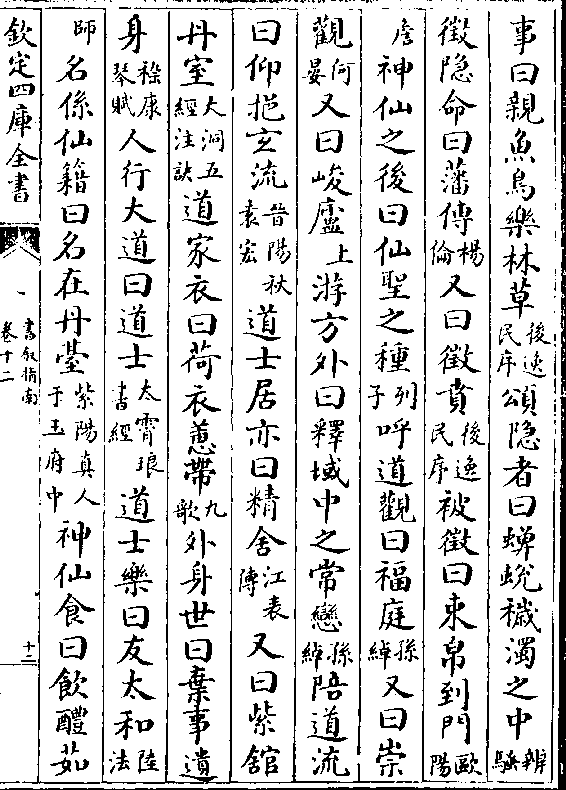 事曰親魚鳥樂林草後逸民序頌隐者曰蟬蛻穢濁之中辨騷
徵隐命曰藩傳楊倫又曰徵賁後逸民序被徵曰束帛到門歐陽
詹神仙之後曰仙聖之種列子呼道觀曰福庭孫綽又曰崇
觀何晏又曰峻廬上游方外曰釋域中之常戀孫綽陪道流
曰仰挹玄流晉陽秋袁宏道士居亦曰精舍江表傳又曰紫舘
丹室大洞五經注訣道家衣曰荷衣蕙帶九歌外身世曰棄事遺
身嵇康琴賦人行大道曰道士太霄琅書經道士樂曰友太和陸法
師名係仙籍曰名在丹䑓紫陽真人于玉府中神仙食曰飲醴茹
欽定四庫全書
書叙指南
卷十二
十二